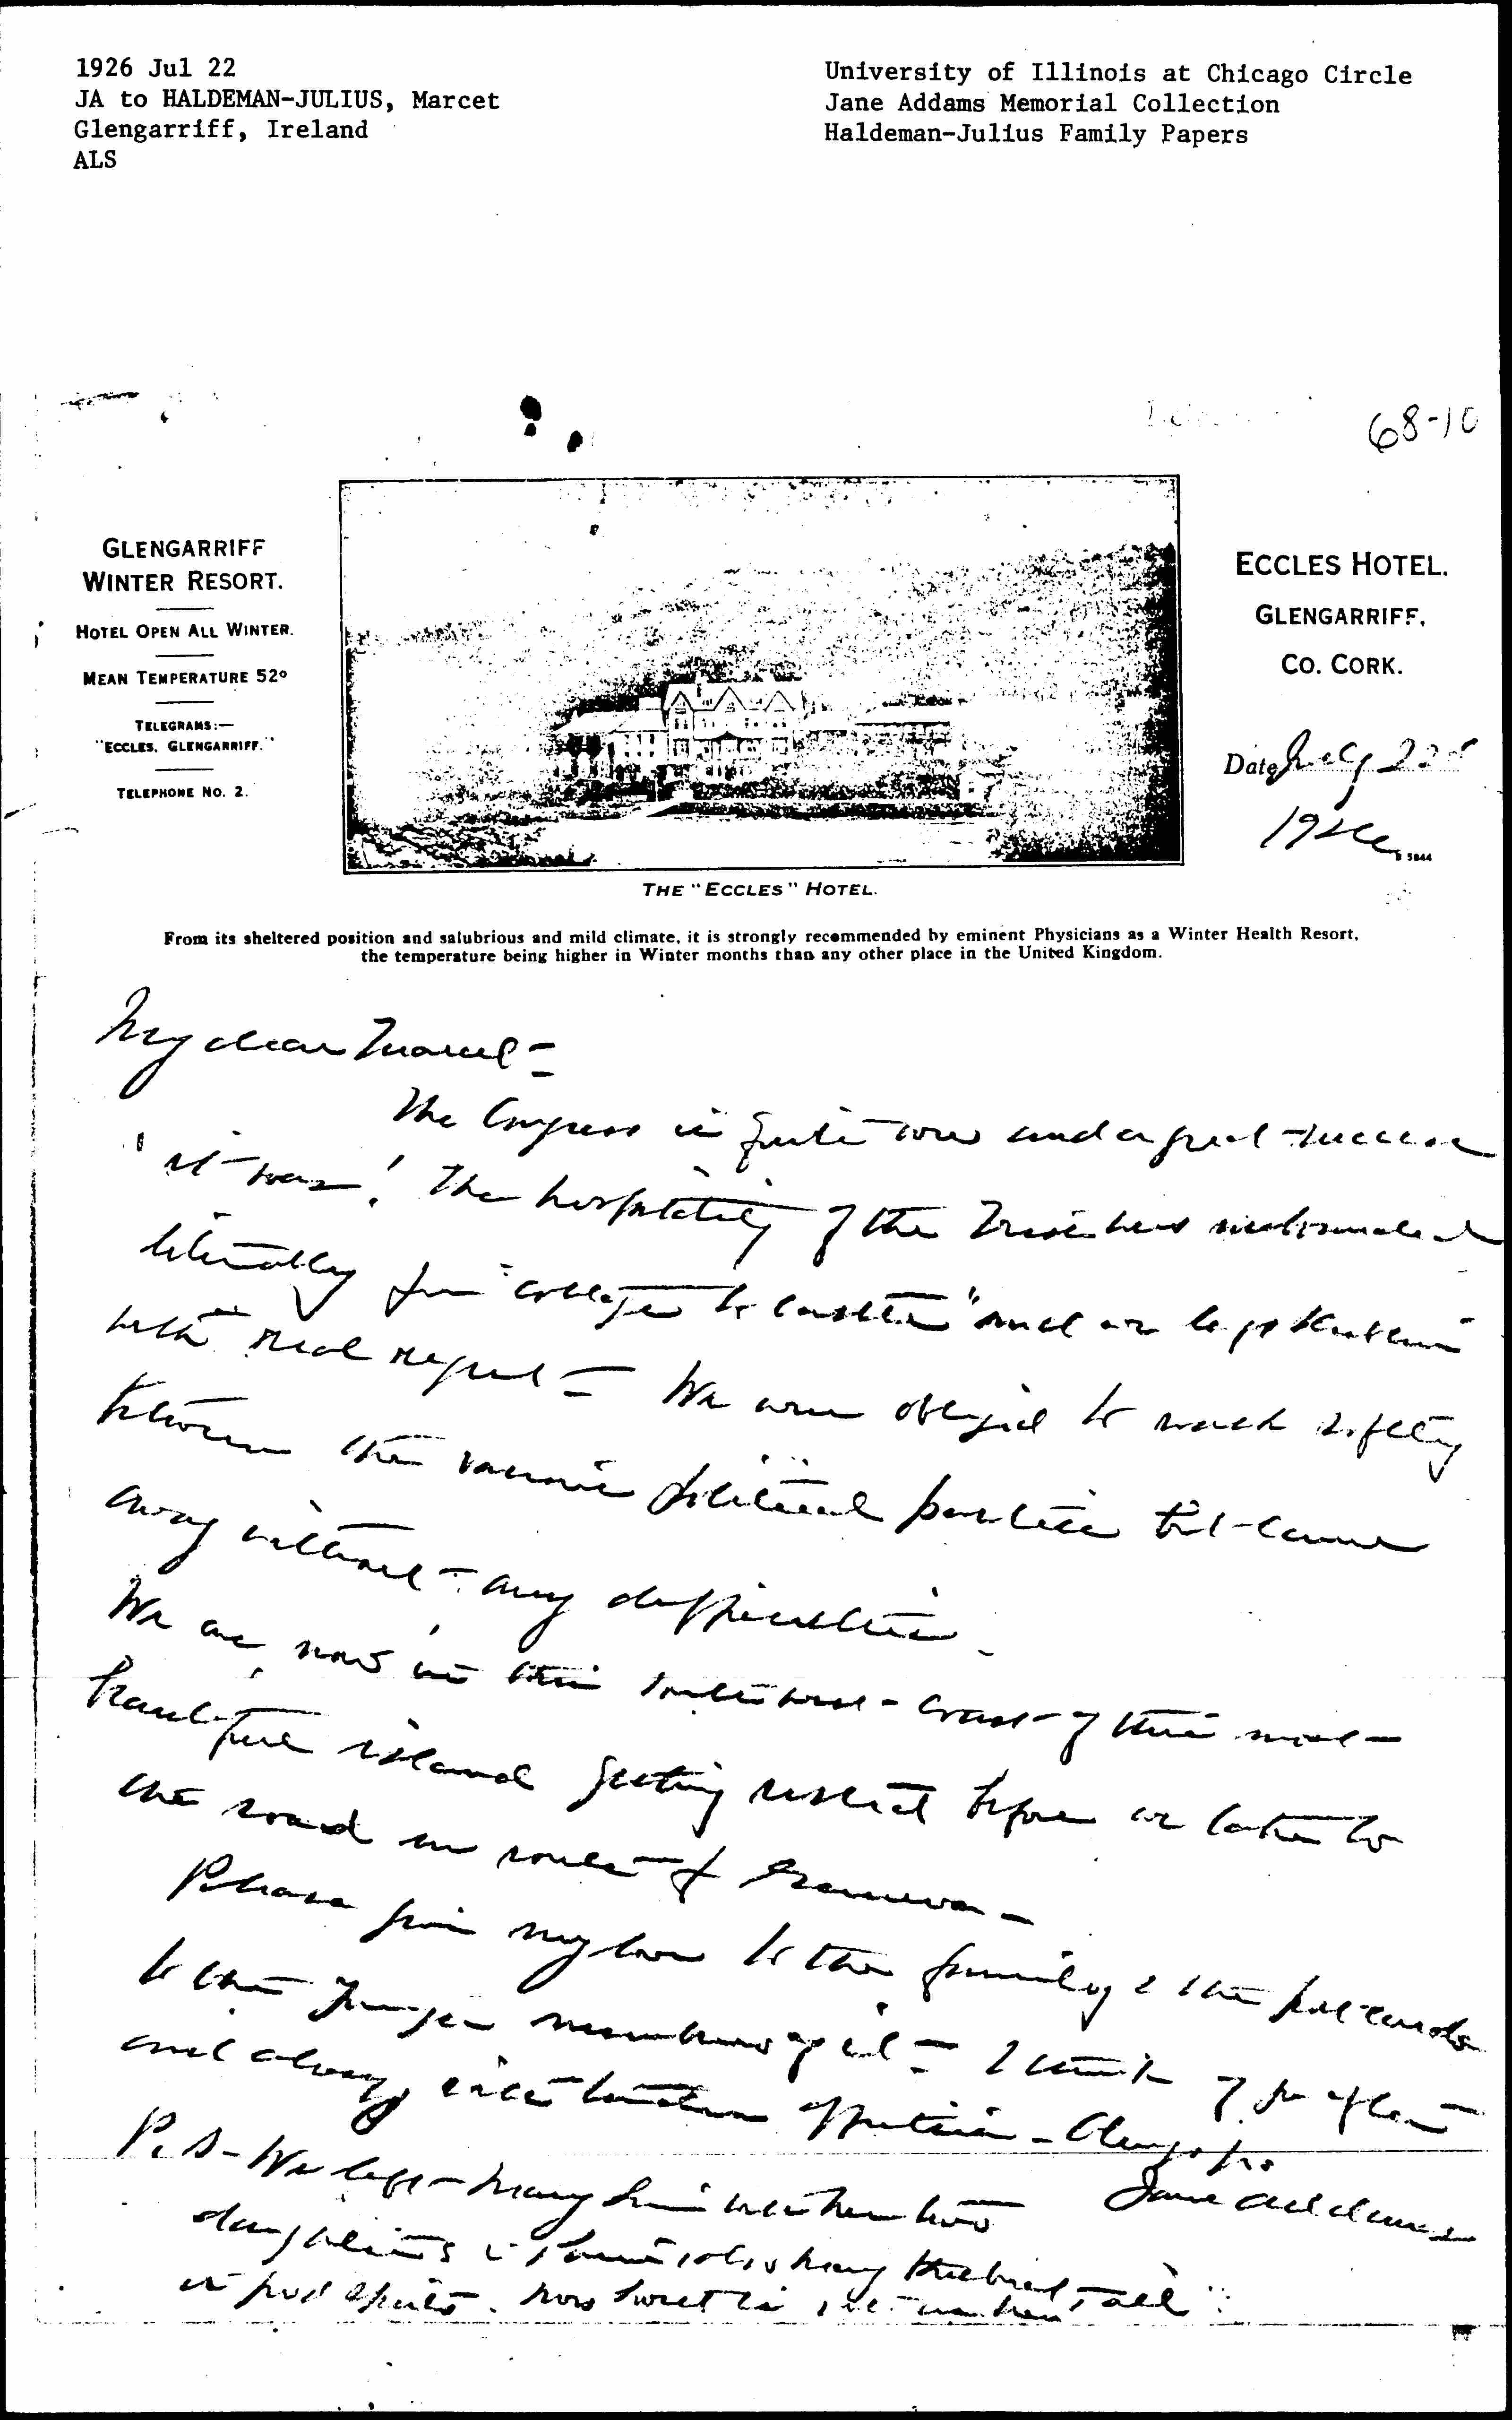 1926 Jul 22
JA to HALDEMAN-JULIUS, Marcet
Glengarriff, Ireland
ALS
University of Illinois at Chicago Circle
Jane Addams Memorial Collection
Haldeman-Julius Family Papers
68-10
GLENGARRIFF
WINTER RESORT.
HOTEL OPEN ALL WINTER.
MEAN TEMPERATURE 52º
TELEGRAMS:—
"ECCLES, GLENGARRIFF."
TELEPHONE NO. 2.
ECCLES HOTEL.
GLENGARRIFF,
CO. CORK.
Date July 22d
1926
5844
THE "ECCLES" HOTEL.
From its sheltered position and salubrious and mild climate, it is strongly recommended by eminent Physicians as a Winter Health Resort,
the temperature being higher in Winter months than any other place in the United Kingdom.
My dear Marcet =
The Congress is quite over and a great success
it was! The hospitality of the Irish was
literally from "cottage to castle" and we left Dublin
with real regret = We were obliged to walk softly
between the various political parties but came
away without any difficulties.
We are now in the southwest coast of this most
beautiful island getting rested before we take to
the road en route to Geneva -
Please give my love to the family & the postcards
to the younger members of it = I think of you often
and always with tender affection - Always yrs
Jane Addams
P.S - We left Mary with her two
daughters &
in good spirits. how sweet all